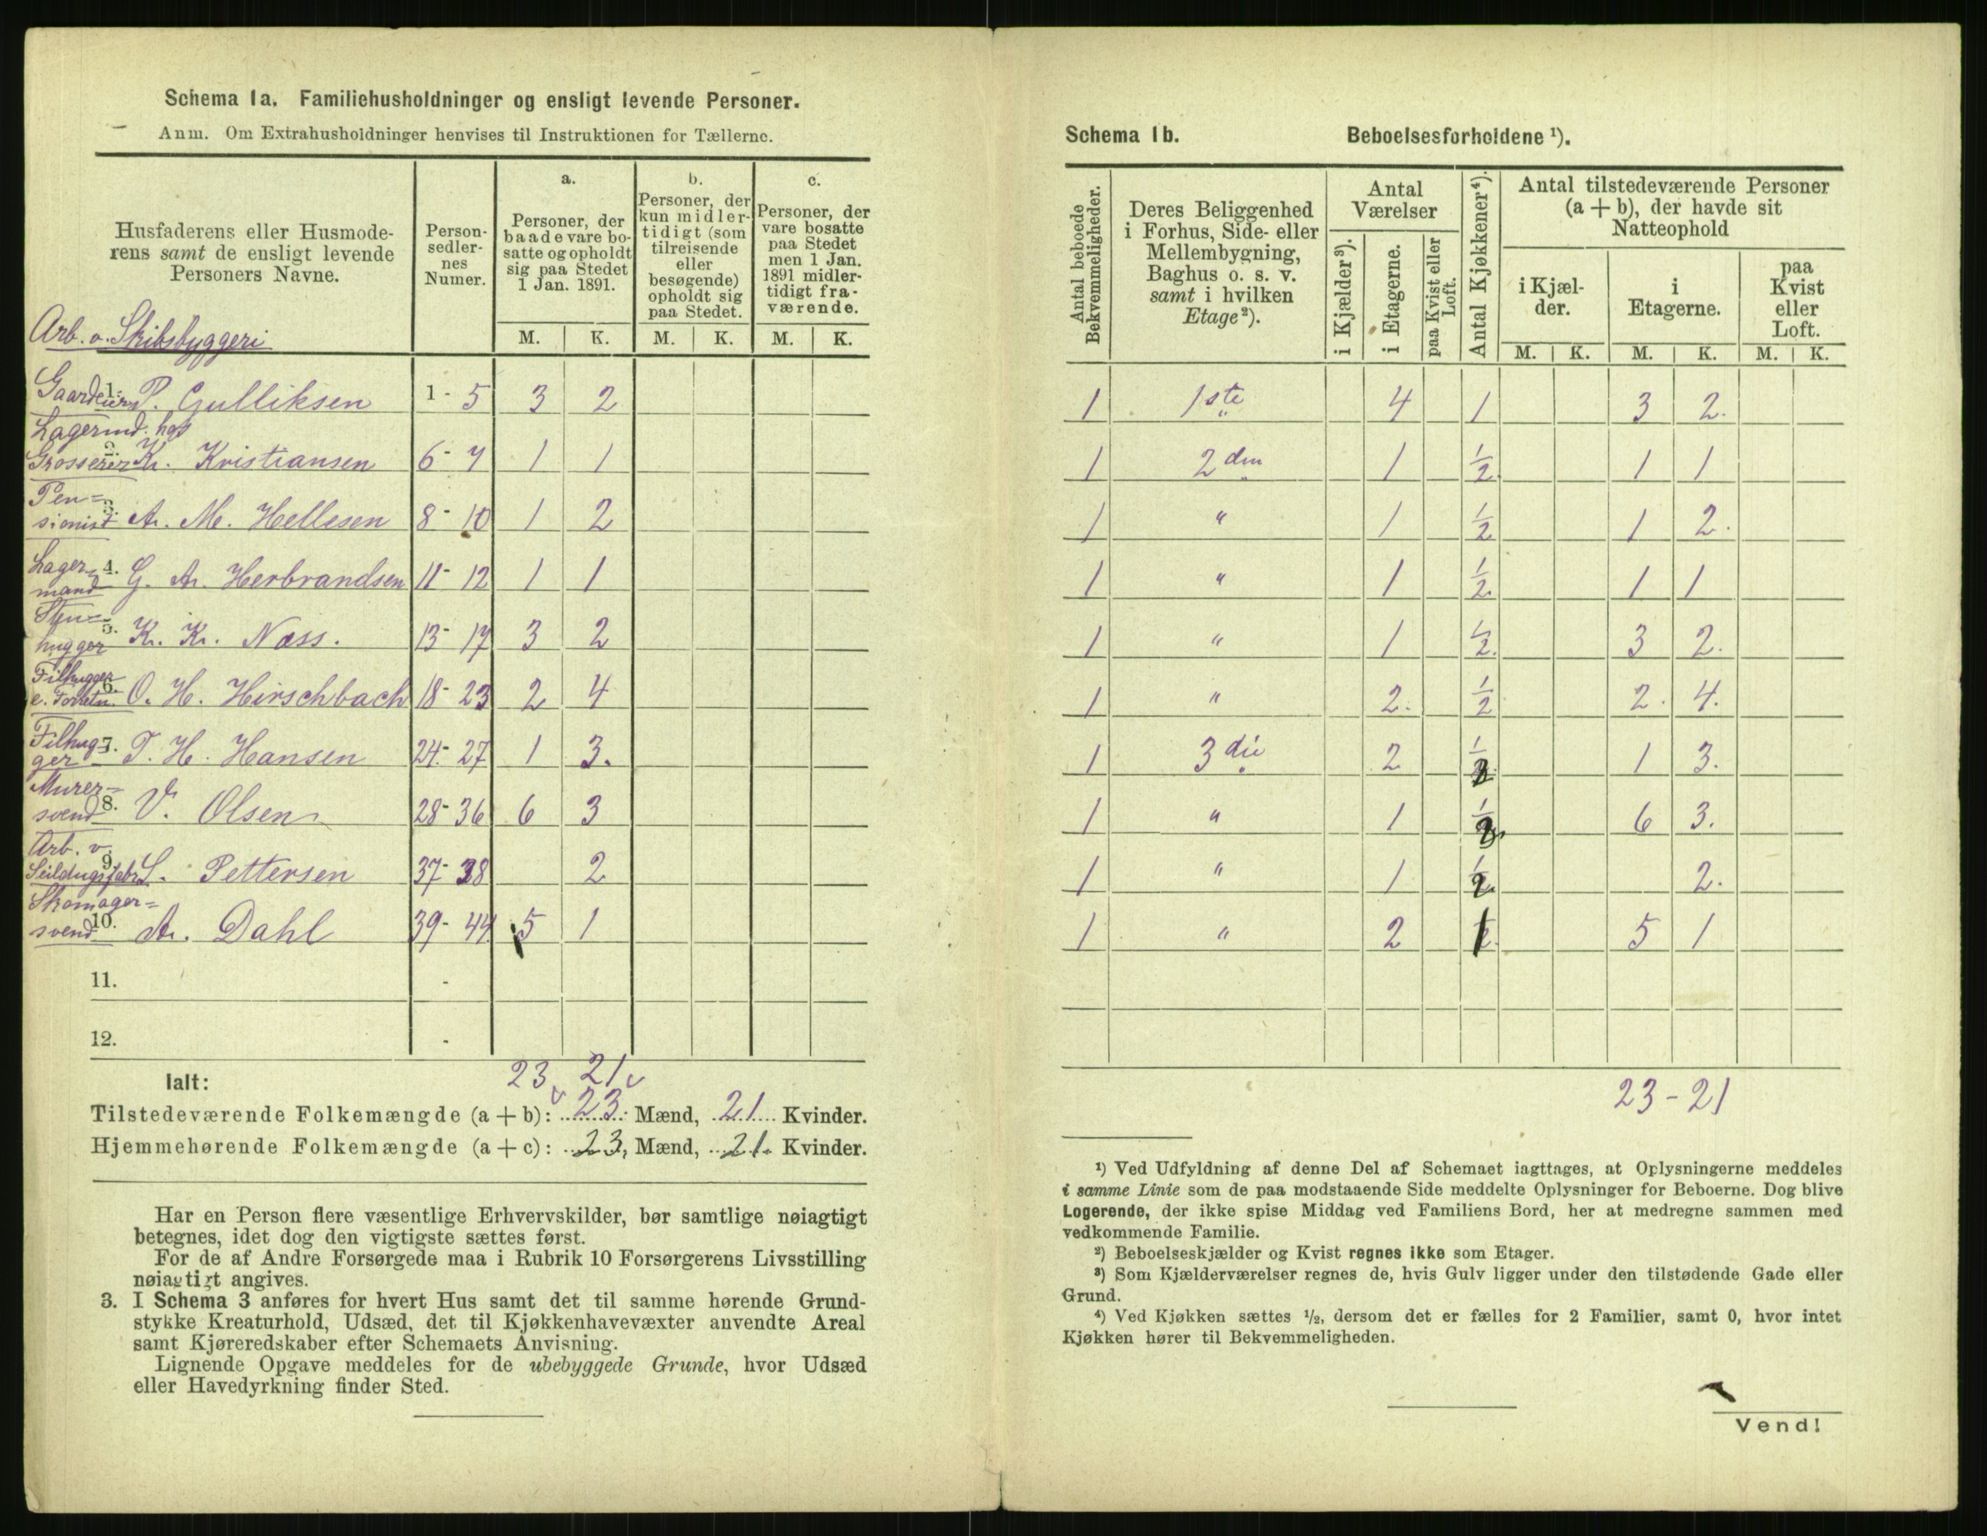 Schema 1a. Familiehusholdninger og ensligt levende Personer.
Anm. Om Extrahusholdninger henvises til Instruktionen for Tællerne.
Husfaderens eller Husmoderens samt de ensligt levende Personers Navne.
Person-sedler-nes Numer.
a. Personer, der baade vare bosatte og opholdt sig paa Stedet 1 Jan. 1891.
b. Personer, der kun midlertidigt (som tilreisende eller besøgende) opholdt sig paa Stedet.
c. Personer, der vare bosatte paa Stedet men 1 Jan. 1891 midlertidigt fraværende.
M. K. M. K. M. K.
Arb. v. Skibsbyggeri
Gaardeier 1. P. Gulliksen 1 - 5 3 2
Lagermd. hos
Grosserer 2. Kr. Kristiansen 6 - 7 1 1
Pen=
sionist 3. A. M. Hellesen 8 - 10 1 2
Lager=
mand 4. G. A. Herbrandsen 11 - 12 1 1
Sten=
hugger 5. Kr. Kr. Næss. 13 - 17 3 2
Filhugger
e. Forretn. 6. O. H. Hirschbach 18 - 23 2 4
Filhug=
ger 7. T. H. Hansen 24 - 27 1 3.
Murer=
svend 8. V. Olsen 28 - 36 6 3
Arb. v.
Seildugsfabr. 9. S. Pettersen 37 - 38 2
Skomager=
svend 10. A. Dahl 39 - 44 5 1
11. -
12. -
23 21
Ialt:
Tilstedeværende Folkemængde (a + b): 23. Mænd, 21 Kvinder.
Hjemmehørende Folkemængde (a + c): 23, Mænd, 21. Kvinder.
Har en Person flere væsentlige Erhvervskilder, bør samtlige nøiagtigt
betegnes, idet dog den vigtigste sættes først.
For de af Andre Forsørgede maa i Rubrik 10 Forsørgerens Livsstilling
nøiagtigt angives.
3. I Schema 3 anføres for hvert Hus samt det til samme hørende Grund-
stykke Kreaturhold, Udsæd, det til Kjøkkenhavevæxter anvendte Areal
samt Kjøreredskaber efter Schemaets Anvisning.
Lignende Opgave meddeles for de ubebyggede Grunde, hvor Udsæd
eller Havedyrkning finder Sted.
Schema 1b. Beboelsesforholdene ¹).
Antal beboede Bekvemmeligheder.
Deres Beliggenhed i Forhus, Side- eller Mellembygning, Baghus o. s. v. samt i hvilken Etage²).
Antal Værelser
i Kjælder³).
i Etagerne.
paa Kvist eller Loft.
Antal Kjøkkener⁴).
Antal tilstedeværende Personer (a + b), der havde sit Natteophold
i Kjæl-der.
i Etagerne.
paa Kvist eller Loft.
M. K. M. K. M. K.
1 1ste 4 1 3 2.
1 2den 1 ½ 1 1
1 " 1 ½ 1 2.
1 " 1 ½. 1 1
1 " 1 ½. 3 2.
1 " 2. ½ 2. 4.
1 3die 2 ½ 1 3.
1 " 1 ½. 6 3.
1 " 1 ½. 2.
1 " 2 1 5 1
23 - 21
¹) Ved Udfyldning af denne Del af Schemaet iagttages, at Oplysningerne meddeles
i samme Linie som de paa modstaaende Side meddelte Oplysninger for Beboerne. Dog blive
Logerende, der ikke spise Middag ved Familiens Bord, her at medregne sammen med
vedkommende Familie.
²) Beboelseskjælder og Kvist regnes ikke som Etager.
³) Som Kjælderværelser regnes de, hvis Gulv ligger under den tilstødende Gade eller
Grund.
⁴) Ved Kjøkken sættes ½, dersom det er fælles for 2 Familier, samt 0, hvor intet
Kjøkken hører til Bekvemmeligheden.
Vend!